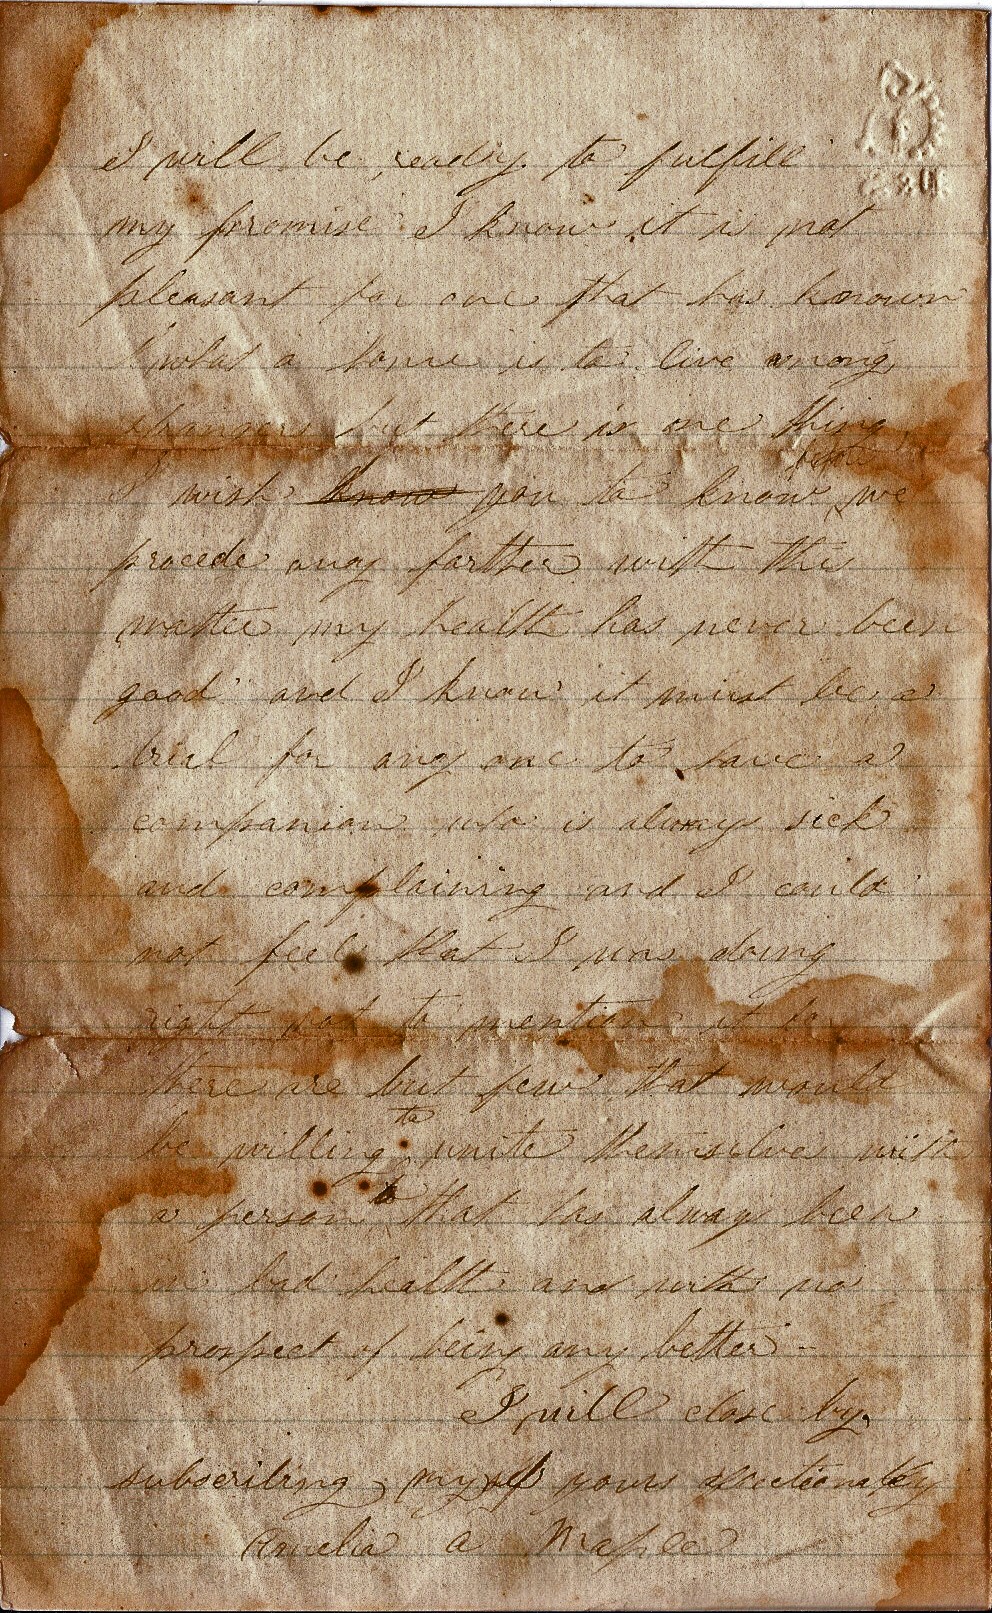 I will be ready to fulfill
my promise I know it is not
pleasant for one that has known
what a home is to live among
strangers but there is one thing
before
I wish know you to know we
procede any farther with this
matter my health has never been
good and I know it must be a
trial for any one to have a
companion who is always sick
and complaining and I could
not feel that I was doing
right not to mention it for
there are but few that would
to
be willing unite themselves with
a person that has always been
in bad health and with no
prospect of being any better -
I will close by
subscribing myself yours affectionately
Amelia a Maple